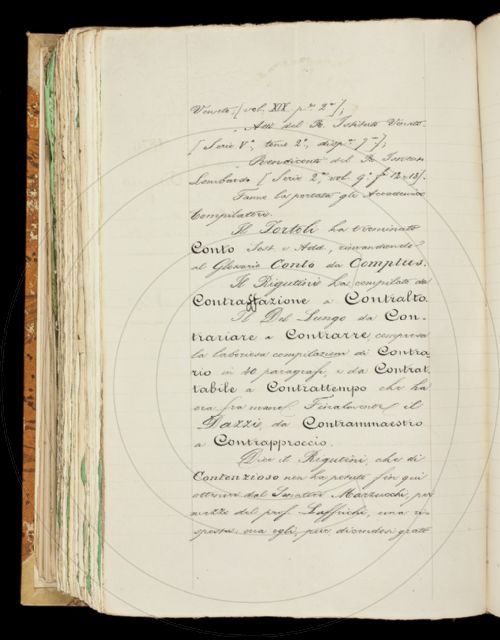 Veneto, (vol. XIX p.e 2a);
Atti del R. Istituto Veneto.
(Serie Va, tomo 2o, disp.a 7a);
Rendiconti del R. Istituto
Lombardo (Serie 2a, vol. 9o f. 12-13).
Fanno la portata gli Accademici
Compilatori.
Il Tortoli ha terminato
Conto Sost. e Add., rimandando
al Glossario Conto da Computus.
Il Rigutini ha compilato da
Contraffazione a Contralto.
Il Del Lungo da Con-
trariare a Contrarre, compresa
la laboriosa compilazione di Contra
rio in 40 paragrafi, e da Contrat-
tabile a Contrattempo che ha
ora fra mano. Finalmente il
Dazzi, da Contrammaestro
a Contrapproccio.
Dice il Rigutini, che di
Contenzioso non ha potuto fin qui
ottenere dal Senatore Marzucchi, per
mezzo del prof. una ri-
sposta; ma egli, pur dicendosi grato